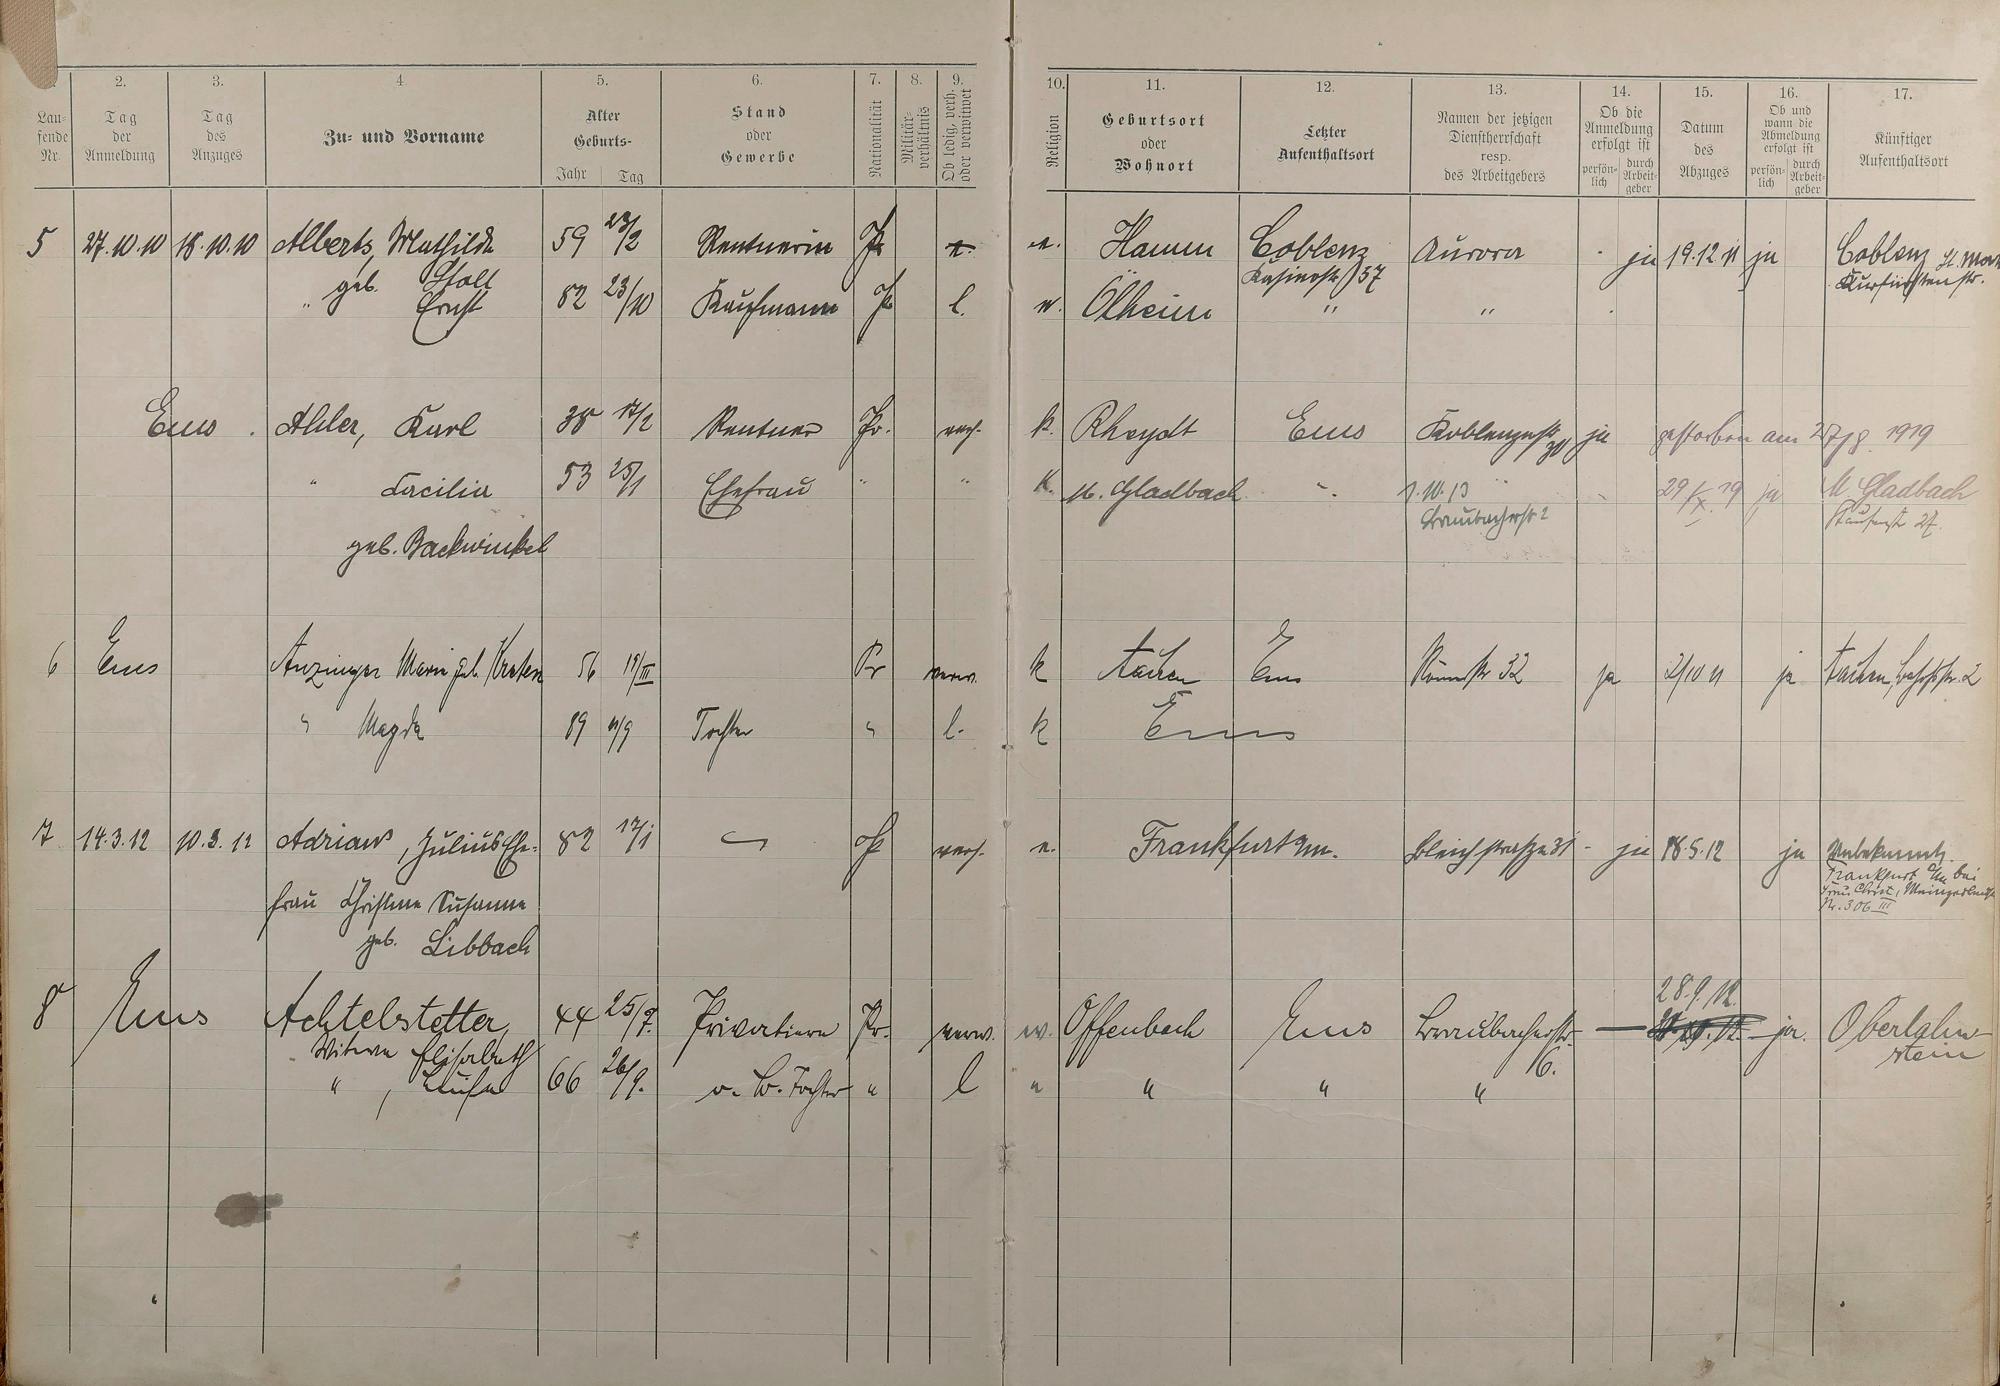 2. 3. 4 5. 6. 7. 8. 9. 10. 11. 12. 13. 14. 15. 16. 17.
Lau-
fende
Nr.
Tag
der
Anmeldung
Tag
des
Anzuges
Zu- und Vorname
Alter
Geburts-
Jahr Tag
Stand
oder
Gewerbe
Nationalität
Militär-
verhältnis
Ob ledig, verh.
oder verwitwet
Religion
Geburtsort
oder
Wohnort
Letzter
Aufenthaltsort
Namen der jetzigen
Dienstherrschaft
resp.
des Arbeitgebers
Ob die
Anmeldung
erfolgt ist
persön-
lich
durch
Arbeit-
geber
Datum
des
Abzuges
Ob und
wann die
Abmeldung
erfolgt ist
persön-
lich
durch
Arbeit-
geber
Künftiger
Aufenthaltsort
5 27.10.10 18.10.10 Alberts, Mathilde 59 23/2 Rentnerin Pr e. Hamm Coblenz Aurora ja 19.12 11 ja Coblenz
geb. Stoll Kasinostr. 37 Kurfürstenstr.
" Ernst 82 23/10 Kaufmann Pr l. Ölheim " "
Ems . Ahler, Karl 38 17/2 Rentner Pr. verh. k. Rheydt Ems Koblenzerstr ja gestorben am 1919
" Cäcilia 53 25/1 Ehefrau " " K. M. Gladbach " 1.10.13 29/X.19 ja M Gladbach
Braubacherstr 2 27.
geb. Backwinkel
6 Ems Anzinger Marie geb. 56 19/III Pr verw. k Aachen Ems Römerstr 32 ja 2/10 11 ja Aachen, Bahnhofstr. 2
" Magda 89 11/9 Tochter " l. k Ems
7 14.3.12 10.3.12 Adrians, Julius Ehe- 82 17/1 Pr verh. e. Frankfurt a/m. Bleichstraße 31 - ja 18.5.12 ja Unbekannt.
Frankfurt a/m bei
frau Christine Susanne Frau Christ, Mainzerlandstr
Nr. 306 III
geb. Libbach
8 Ems Achtelstetter, 44 25/7. Privatiere Pr. verw. Offenbach Ems Braubacherstr. 28.9.12. ja. Oberlahn-
Witwe Elisabeth 6. stein
" , Luise 66 26/9. o. B. Tochter " l " " " "